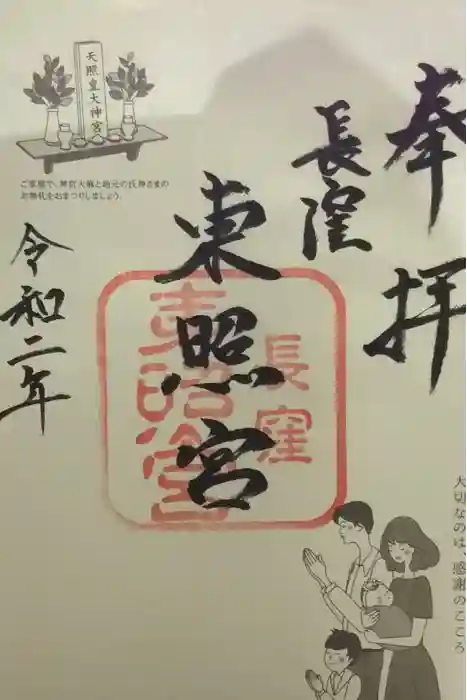 奉拝
長窪
東照宮
令和二年
長窪
東照宮
天照皇大神宮
ご家庭で、神宮大麻と地元の氏神さまの
お神札をおまつりしましょう。
大切なのは、感謝のこころ